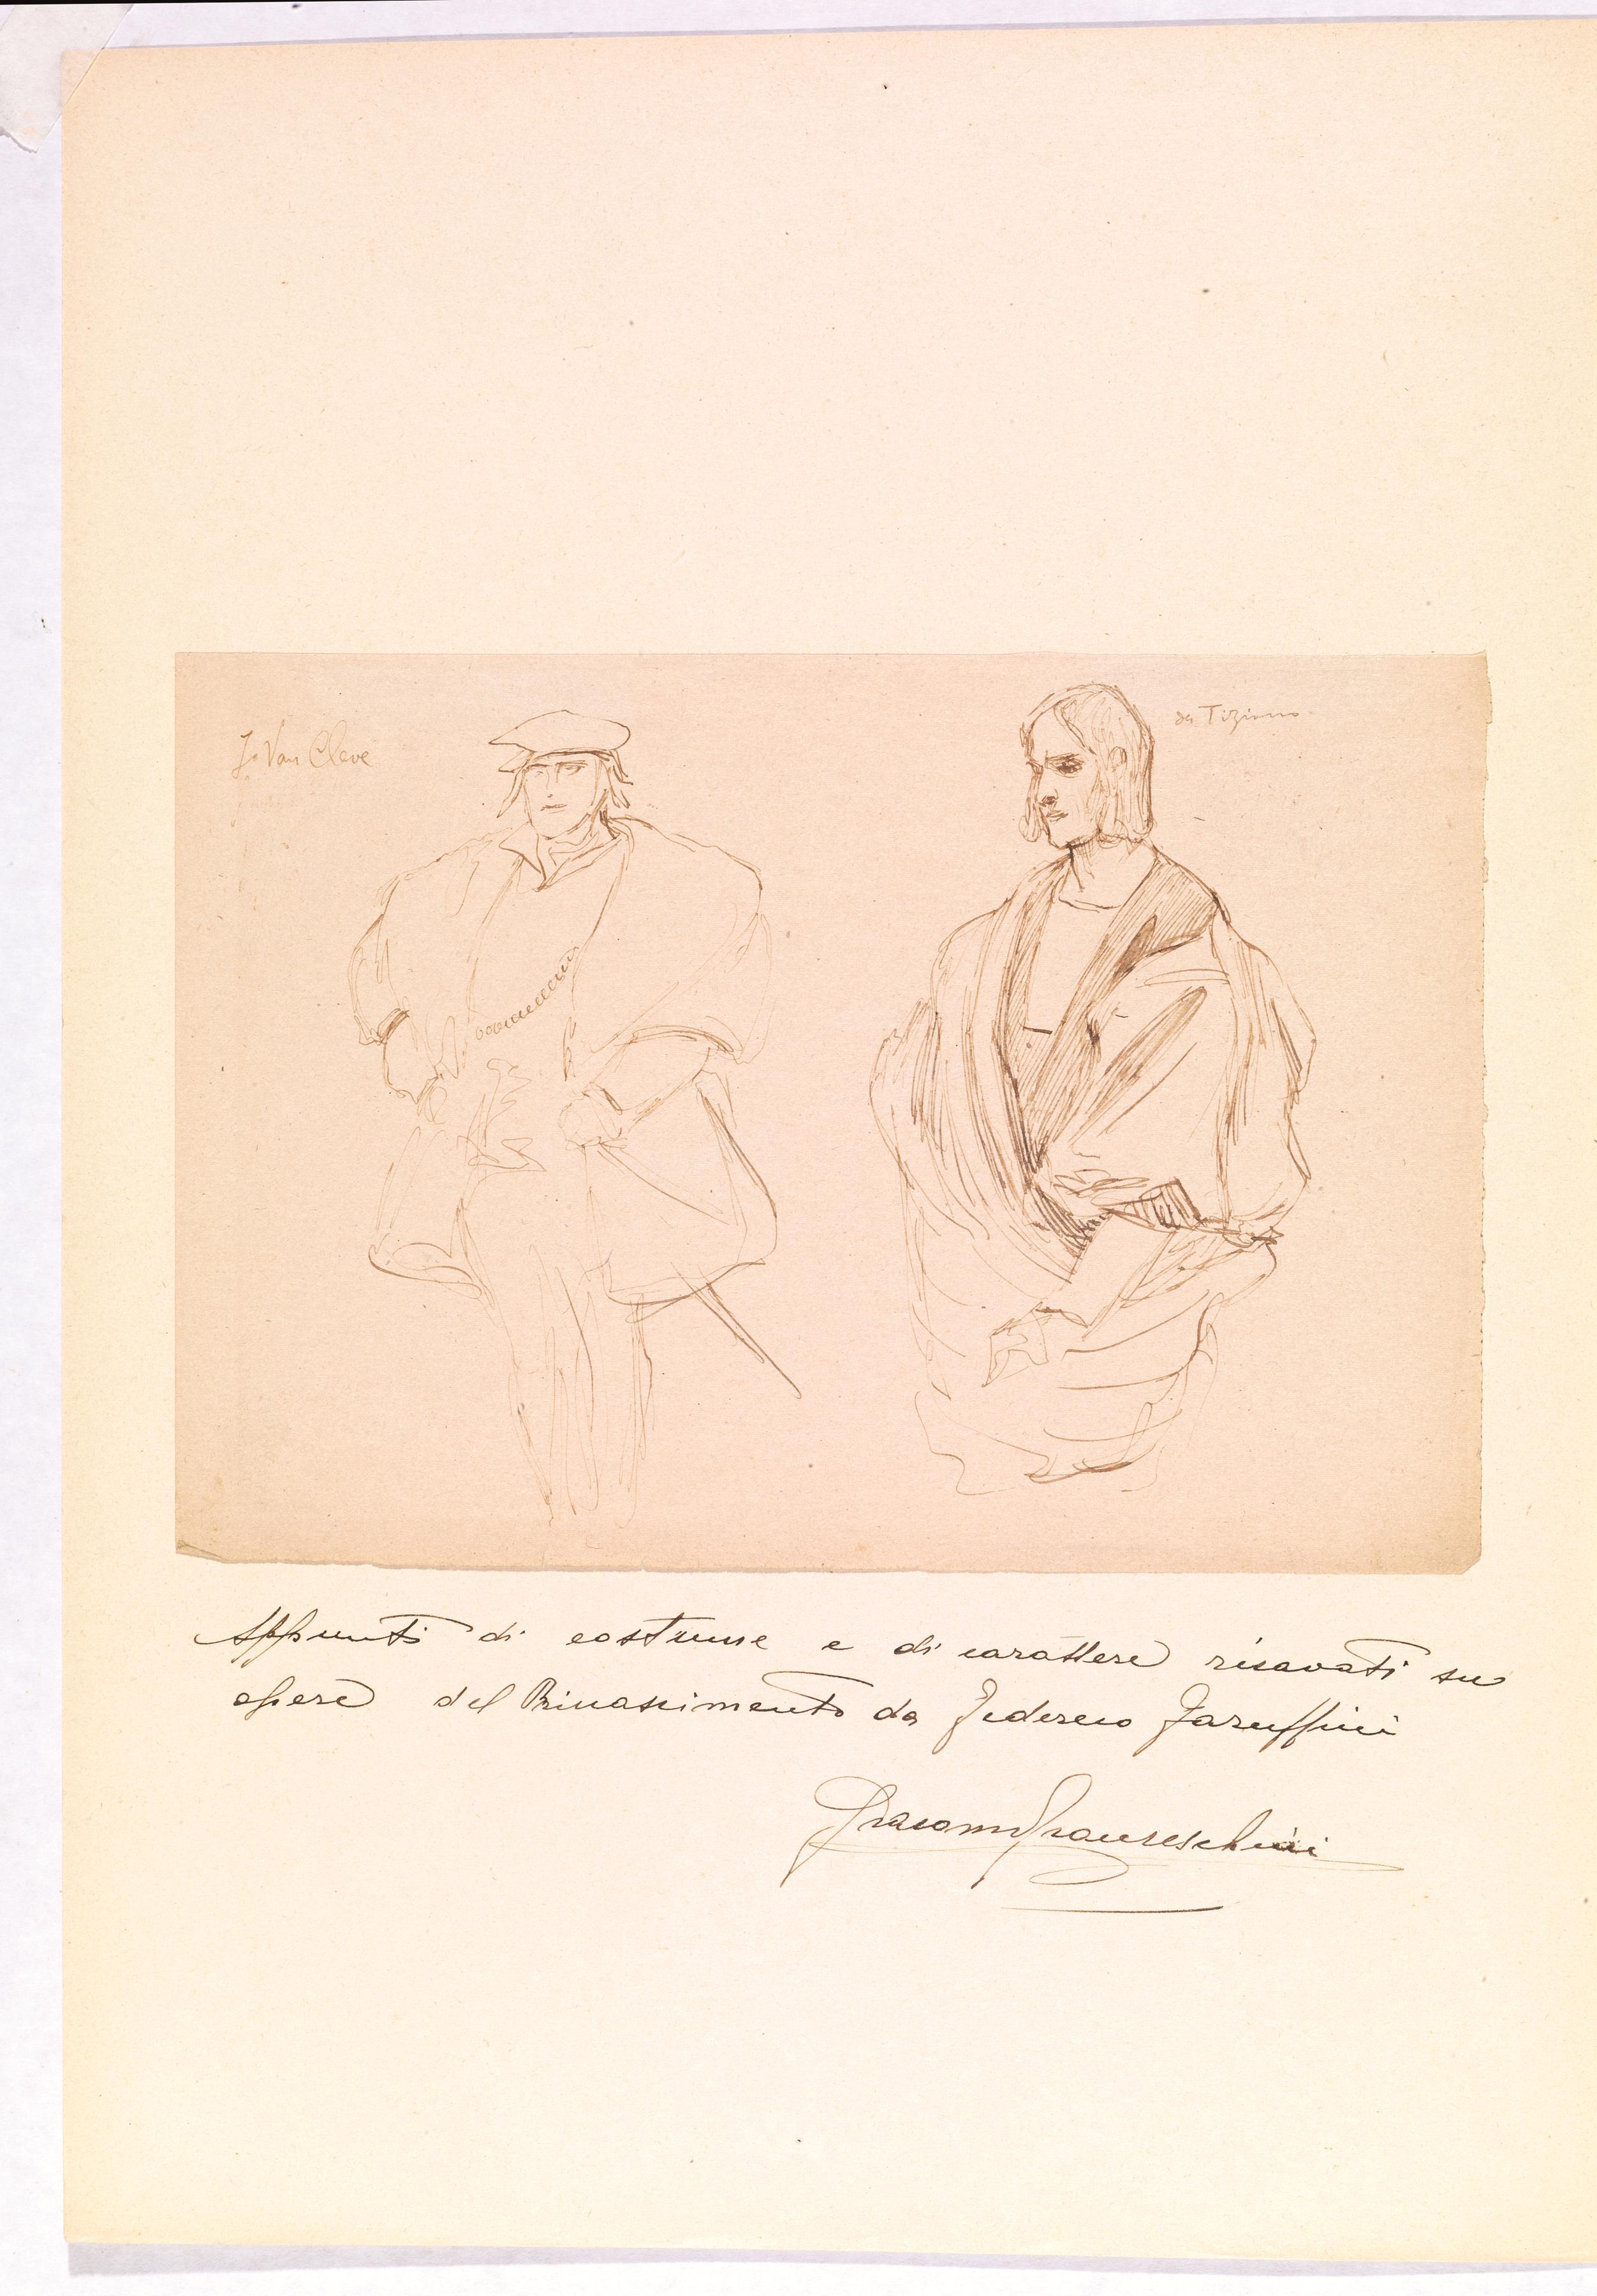 Jo Van Cleve
da Tiziano
Appunti di costume e di carattere ricavati su
opere del Rinascimento da Federico Faruffini
Giacomo Franceschini